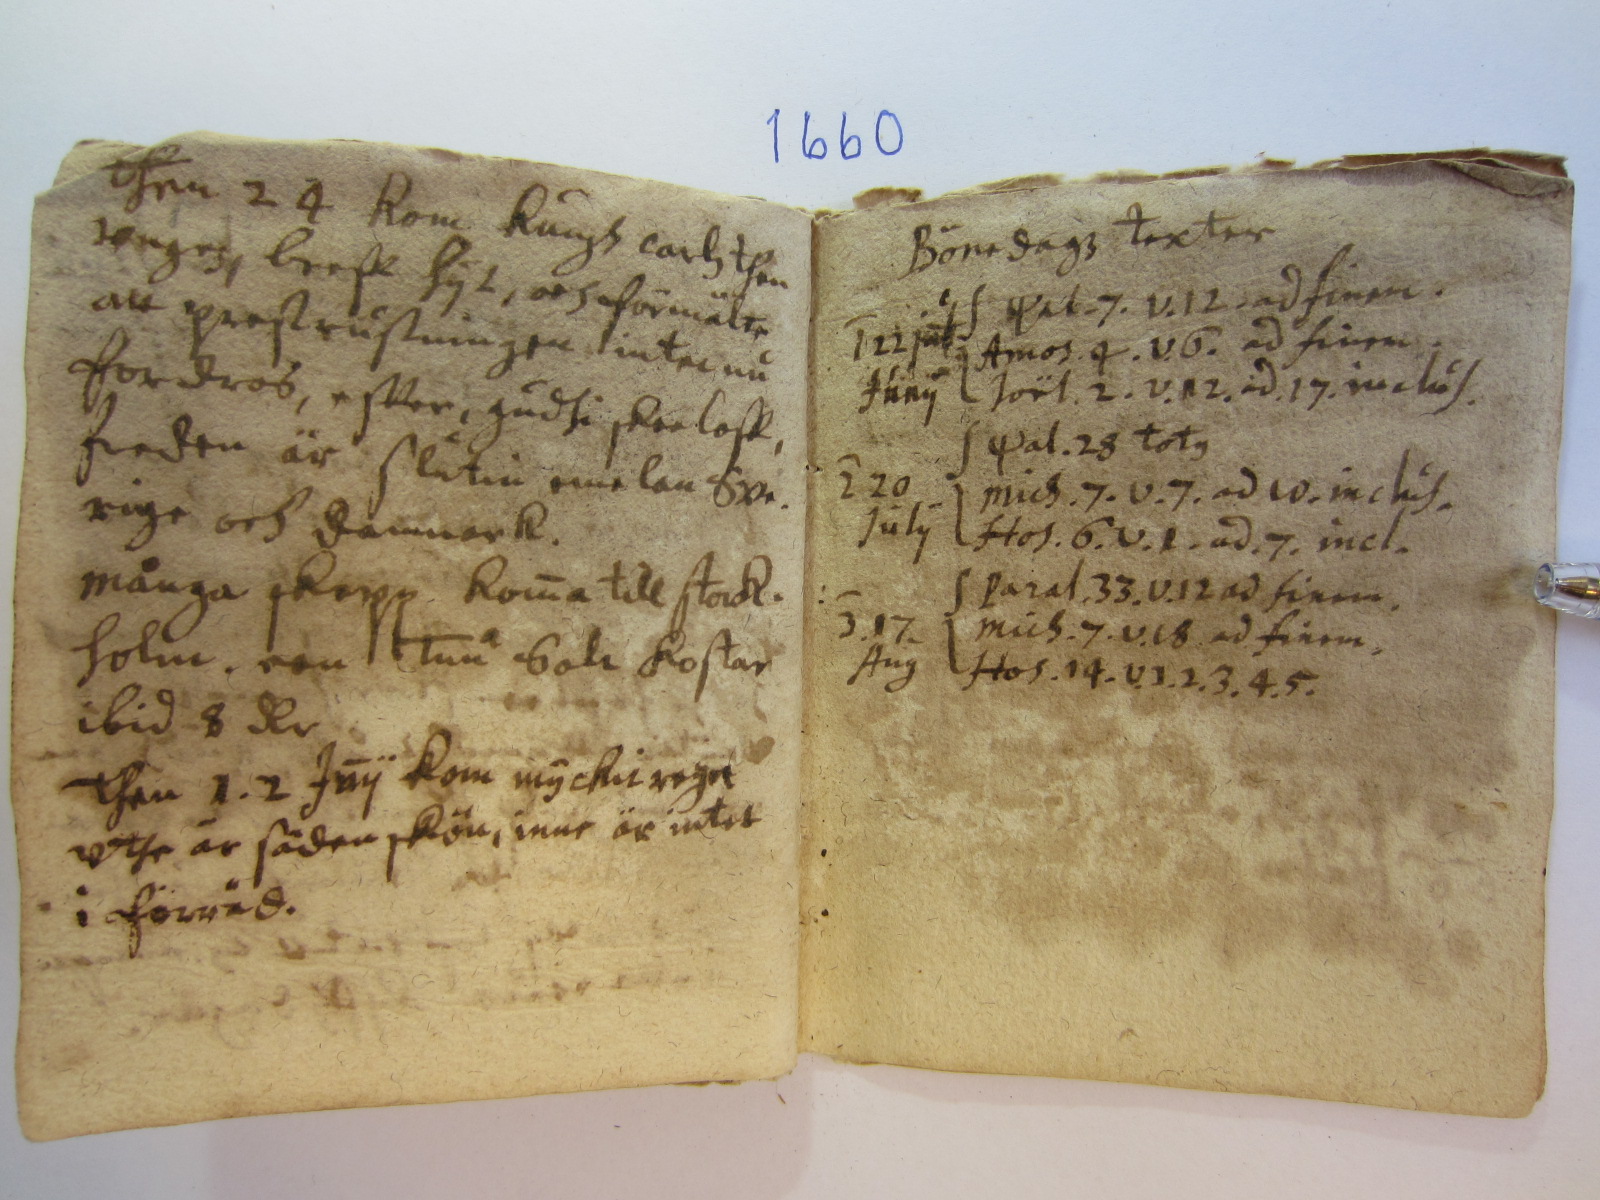 1660
Then 24 kom kungh carls then
unges, breff hijt, och förmälte
att prestrustningen inte nu
fordros, effter, gudhi skee loff,
freden är slutin emellan Sve-
rige och Danmark.
många skepp kom̄a till stock-
holm. een Tunᵃ Salt kostar
ibid 8 dlr
Then 1.2 Junij kom myckit regn
uthe är säden skön, inne är intet
i förråd.
Bönedags texter
1 22 Junij
Psal. 7. v. 12. ad finem.
Amos. 4. v. 6. ad finem.
Joël. 2. v. 12. ad. 17. inclus.
2 20 Julij
Psal. 28 totus
Mich. 7. v. 7. ad 10. inclus.
Hos. 6. v. 1. ad. 7. incl.
3. 17. Aug
Paral. 33. v. 12 ad finem.
Mich. 7. v. 18 ad finem.
Hos. 14. v. 1. 2. 3. 4. 5.